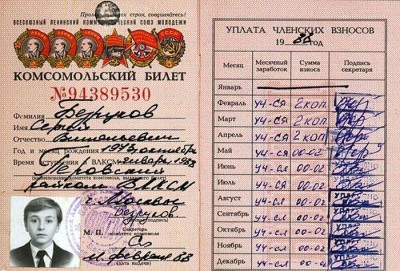 Пролетарии всех стран, соединяйтесь!
ВСЕСОЮЗНЫЙ ЛЕНИНСКИЙ КОММУНИСТИЧЕСКИЙ СОЮЗ МОЛОДЕЖИ
КОМСОМОЛЬСКИЙ БИЛЕТ
№94389530
Фамилия Безруков
Имя Сергей
Отчество Витальевич
Год и месяц рождения 1973 октябрь
Время вступления в ВЛКСМ январь 1988
райком ВЛКСМ
г. Москвы
Безруков
М. П.
февраль 88
УПЛАТА ЧЛЕНСКИХ ВЗНОСОВ
1988 год
Месяц Месячный заработок Сумма взноса Подпись секретаря
Январь
Февраль уч-ся 2 коп.
Март уч-ся 2 коп.
Апрель уч-ся 2 коп.
Май уч-ся 00-02
Июнь уч-ся 00-02
Июль уч-ся 00-02
Август уч-ся 00-02
Сентябрь уч-ся 00-02
Октябрь уч-ся 00-02
Ноябрь уч-ся 00-02
Декабрь уч-ся 00-02